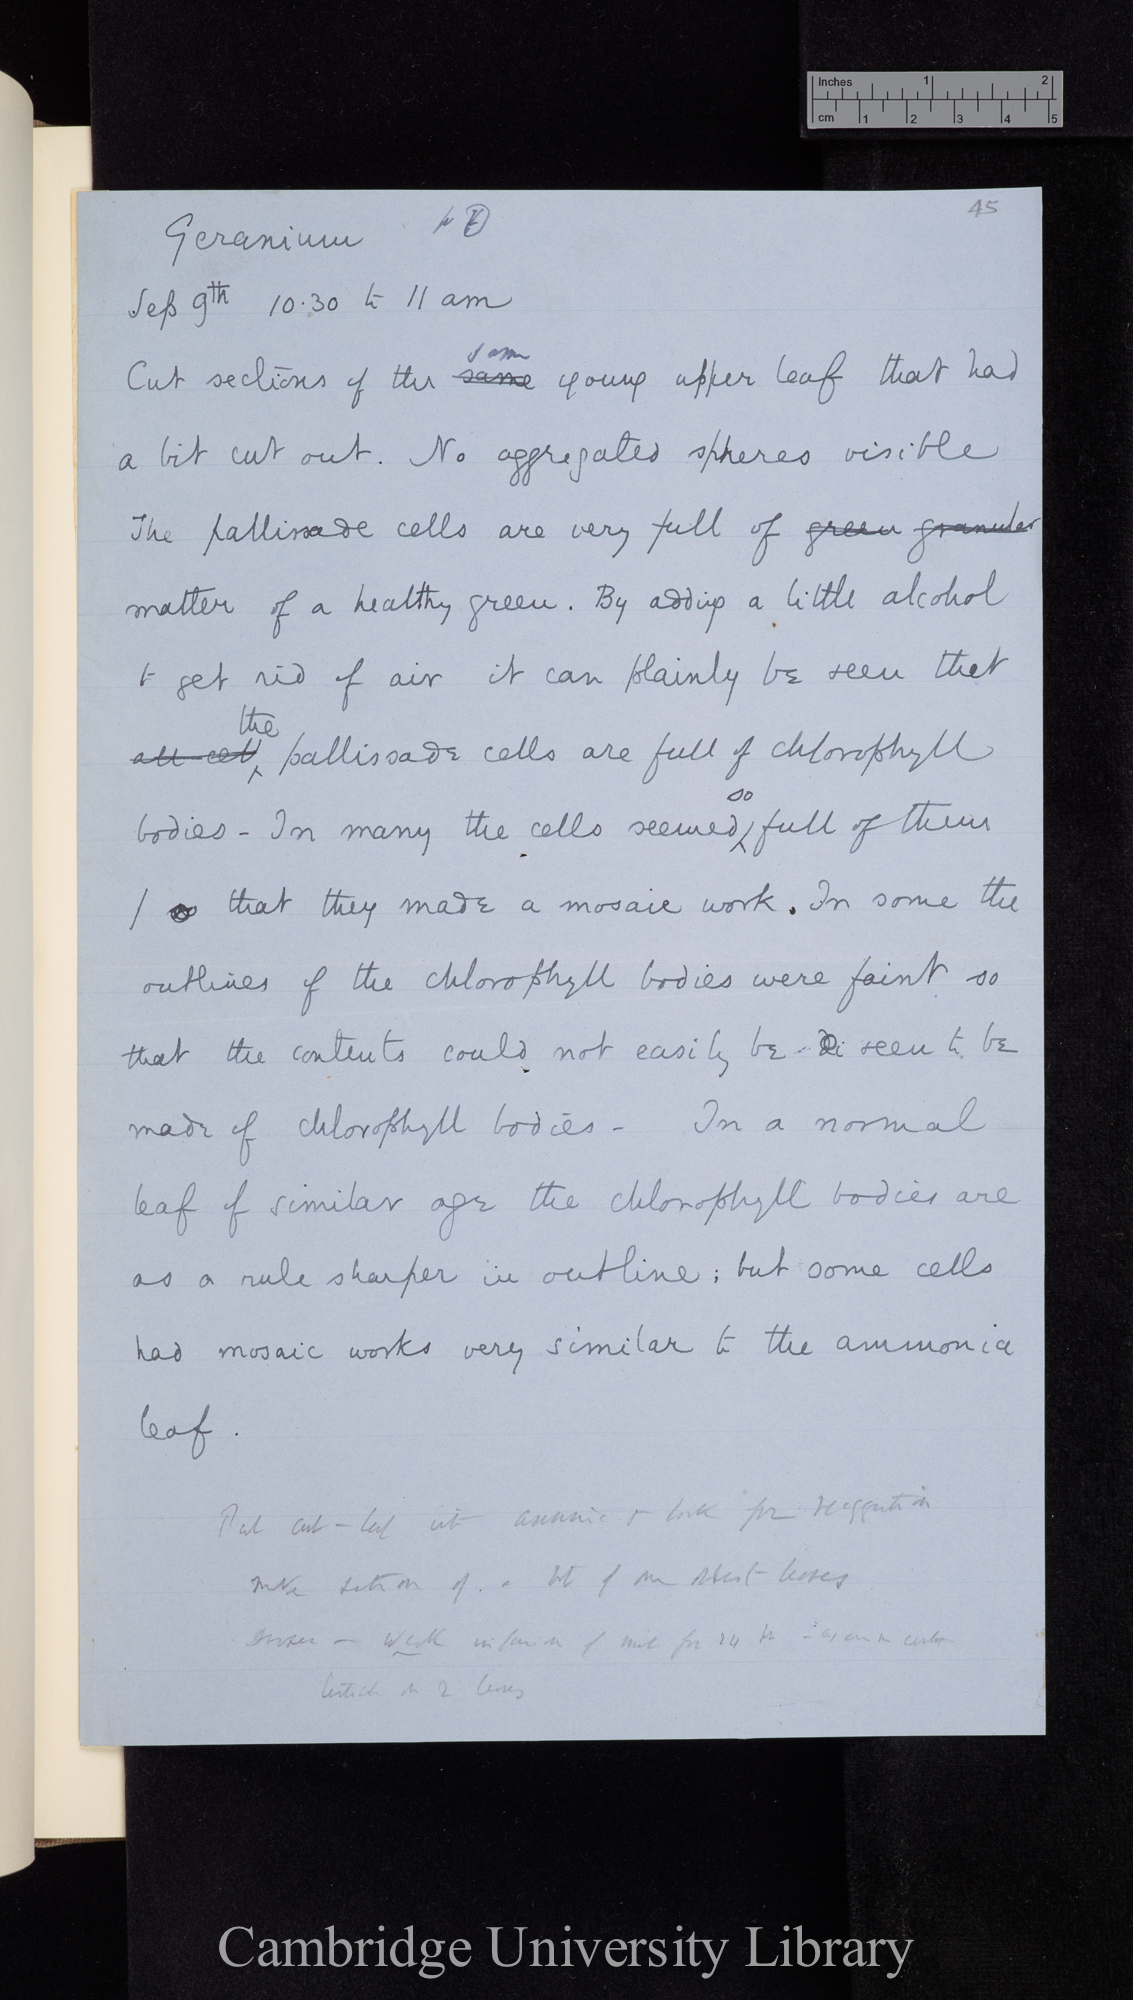 45
Geranium
Sept 9th 10.30 to 11 am
same
Cut sections of the same young upper leaf that had
a bit cut out. No aggregated spheres visible
The pallissade cells are very full of green granular
matter of a healthy green. By adding a little alcohol
to get rid of air it can plainly be seen that
the
all cell pallissade cells are full of chlorophyll
so
bodies - In many the cells seemed full of them
/ so that they made a mosaic work. In some the
outlines of the chlorophyll bodies were faint so
that the contents could not easily be seen to be
made of chlorophyll bodies - In a normal
leaf of similar age the chlorophyll bodies are
as a rule sharper in outline; but some cells
had mosaic works very similar to the ammonia
leaf.
Put cut-leaf into & look for
make section of a bit of leaves
weak infusion of for 24 h
on 2 leaves
Inches 1 2
cm 1 2 3 4 5
Cambridge University Library